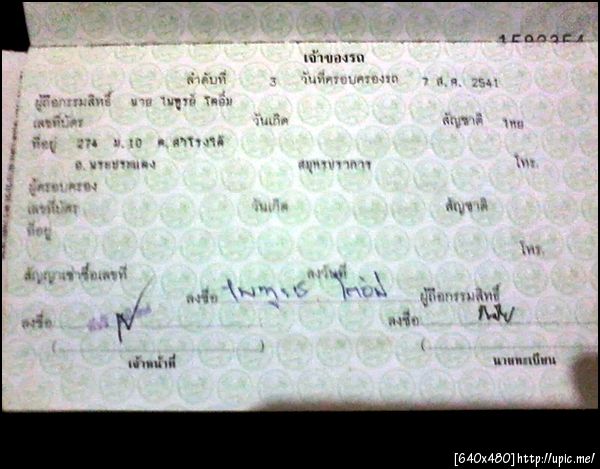 เจ้าของรถ
ลำดับที่ 3 วันที่ครอบครองรถ 7 ส.ค. 2541
ผู้ถือกรรมสิทธิ์ นาย ไพฑูรย์ โตอิ่ม
เลขที่บัตร วันเกิด สัญชาติ ไทย
ที่อยู่ 274 ม.10 ต.สำโรงใต้
อ.พระประแดง สมุทรปราการ โทร.
ผู้ครอบครอง
เลขที่บัตร วันเกิด สัญชาติ
ที่อยู่
โทร.
สัญญาเช่าซื้อเลขที่ ลงวันที่
ลงชื่อ ไพฑูรย์ โตอิ่ม ผู้ถือกรรมสิทธิ์
ลงชื่อ ลงชื่อ
( ) (
เจ้าหน้าที่ นายทะเบียน
[640x480]http://upic.me/